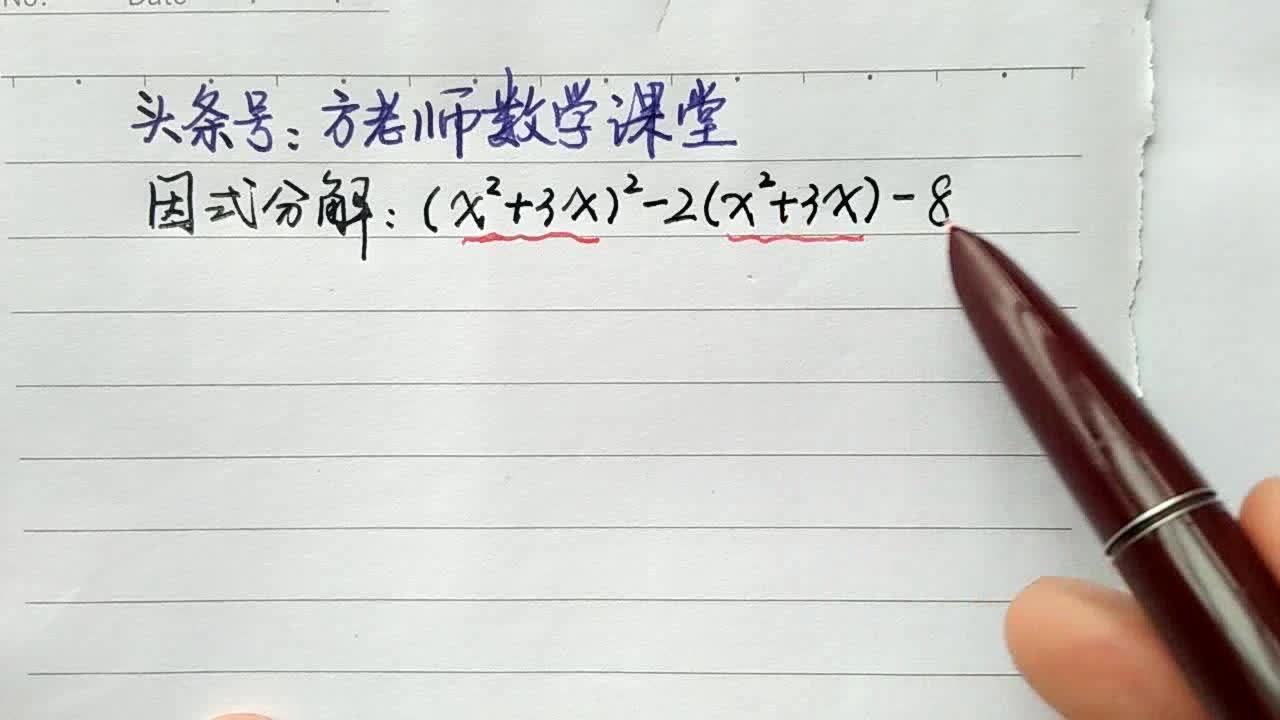 No. Date
头条号:方老师数学课堂
因式分解:(x²+3x)²-2(x²+3x)-8